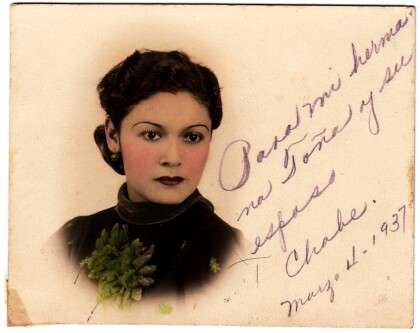 Para mi herma-
na Toña y su
esposo
Chabe.
Marzo 4. 1937